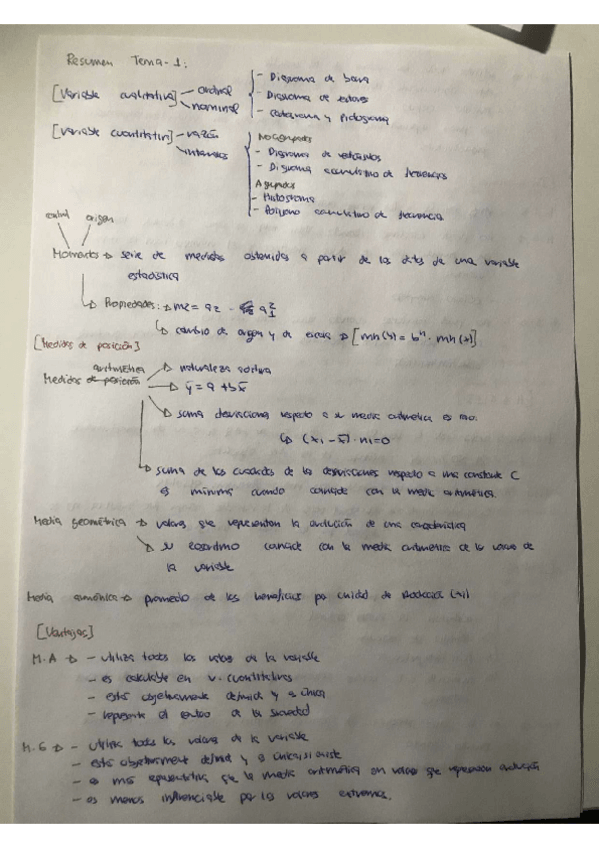 Resumen Tema-1:
[Variable cualitativa] - ordinal
- nominal
- Diagrama de barra
- Diagrama de sectores
- Cartograma y Pictograma
[Variable cuantitativa] - razón
intervalos
No agrupados
- Diagrama de
- Diagrama acumulativo de frecuencias
Agrupados
- Histograma
- Polígono acumulativo de frecuencia
central origen
Momentos → serie de medidas obtenidas a partir de los datos de una variable
estadística
↳ Propiedades: → m2 = a2 - a1²
↳ cambio de origen y de escala → [mh(y) = bʰ · mh(x)]
[Medidas de posición]
aritmética
Medidas → naturaleza
→ ȳ = a + bx̄
→ suma desviaciones respecto a su media aritmética es
↳ (xi - x̄) · ni = 0
↳ suma de los cuadrados de las desviaciones respecto a una constante C
es mínima cuando coincide con la media aritmética.
Media geométrica → valores que representan la evolución de una característica
→ su logaritmo coincide con la media aritmética de los valores de
la variable
Media armónica → promedio de los beneficios por unidad de
[Ventajas]
M.A → - utiliza todos los valores de la variable
- es calculable en v. cuantitativas
- está objetivamente definida y es única
- representa el centro de la
M.G → - utiliza todos los valores de la variable
- está objetivamente definida y es única si existe
- es más representativa que la media aritmética en valores que representan evolución
- es menos influenciable por los valores extremos.